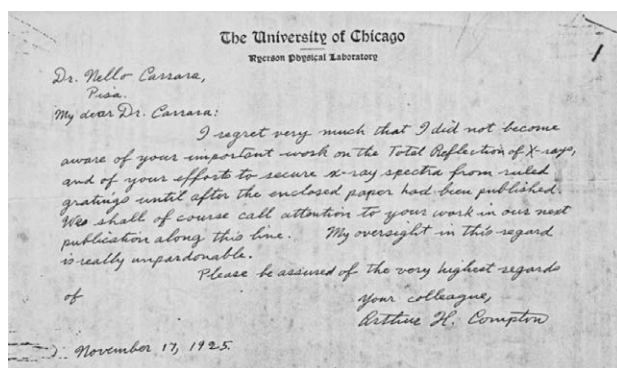 The University of Chicago
Ryerson Physical Laboratory
1
Dr. Nello Carrara,
Pisa.
My dear Dr. Carrara:
I regret very much that I did not become
aware of your important work on the Total Reflection of X-rays,
and of your efforts to secure x-ray spectra from ruled
gratings until after the enclosed paper had been published.
We shall of course call attention to your work in our next
publication along this line. My oversight in this regard
is really unpardonable.
Please be assured of the very highest regards
of
Your colleague,
Arthur H. Compton
November 17, 1925.